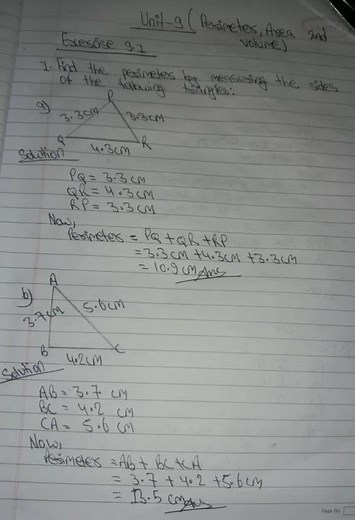 Unit-9 (Perimeter, Area and
volume)
Exercise 9.1
1. Find the perimeters by measuring the sides
of the following triangles:
a)
P
3.3cm
3.3cm
Q
R
4.3cm
Solution
PQ = 3.3 cm
QR = 4.3 cm
RP = 3.3 cm
Now,
Perimeters = PQ + QR + RP
= 3.3cm + 4.3cm + 3.3cm
= 10.9 cm Ans
b)
A
3.7cm
5.6cm
B
C
4.2cm
Solution
AB = 3.7 cm
BC = 4.2 cm
CA = 5.6 cm
Now,
Perimeters = AB + BC + CA
= 3.7 + 4.2 + 5.6 cm
= 13.5 cm Ans
Page No.